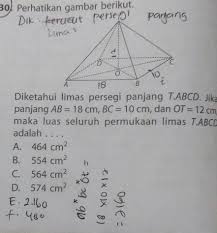 30. Perhatikan gambar berikut.
Dik: kerucut persegi panjang
limas
T
D
C
O
10
A
18
B
Diketahui limas persegi panjang T.ABCD. Jika
panjang AB = 18 cm, BC = 10 cm, dan OT = 12 cm,
maka luas seluruh permukaan limas T.ABCD
adalah ....
A. 464 cm²
B. 554 cm²
C. 564 cm²
D. 574 cm²
E. 2.160
f. 480
ab * bc * ot =
18 x 10 x 12
= 2160